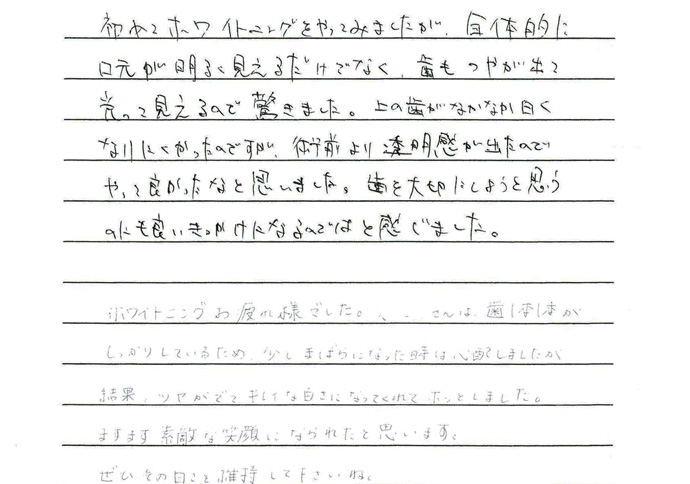 初めてホワイトニングをやってみましたが、全体的に
口元が明るく見えるだけでなく、歯もつやが出て
光って見えるので驚きました。上の歯がなかなか白く
なりにくかったのですが、術前より透明感が出たので
やって良かったなと思いました。歯を大切にしようと思う
のにも良いきっかけになるのではと感じました。
ホワイトニングお疲れ様でした。、 さんは、歯1本1本が
しっかりしているため、少しまばらになった時は心配しましたが
結果、ツヤがでてキレイな白さになってくれてホッとしました。
ますます素敵な笑顔になられたと思います。
ぜひその白さを維持して下さいね。